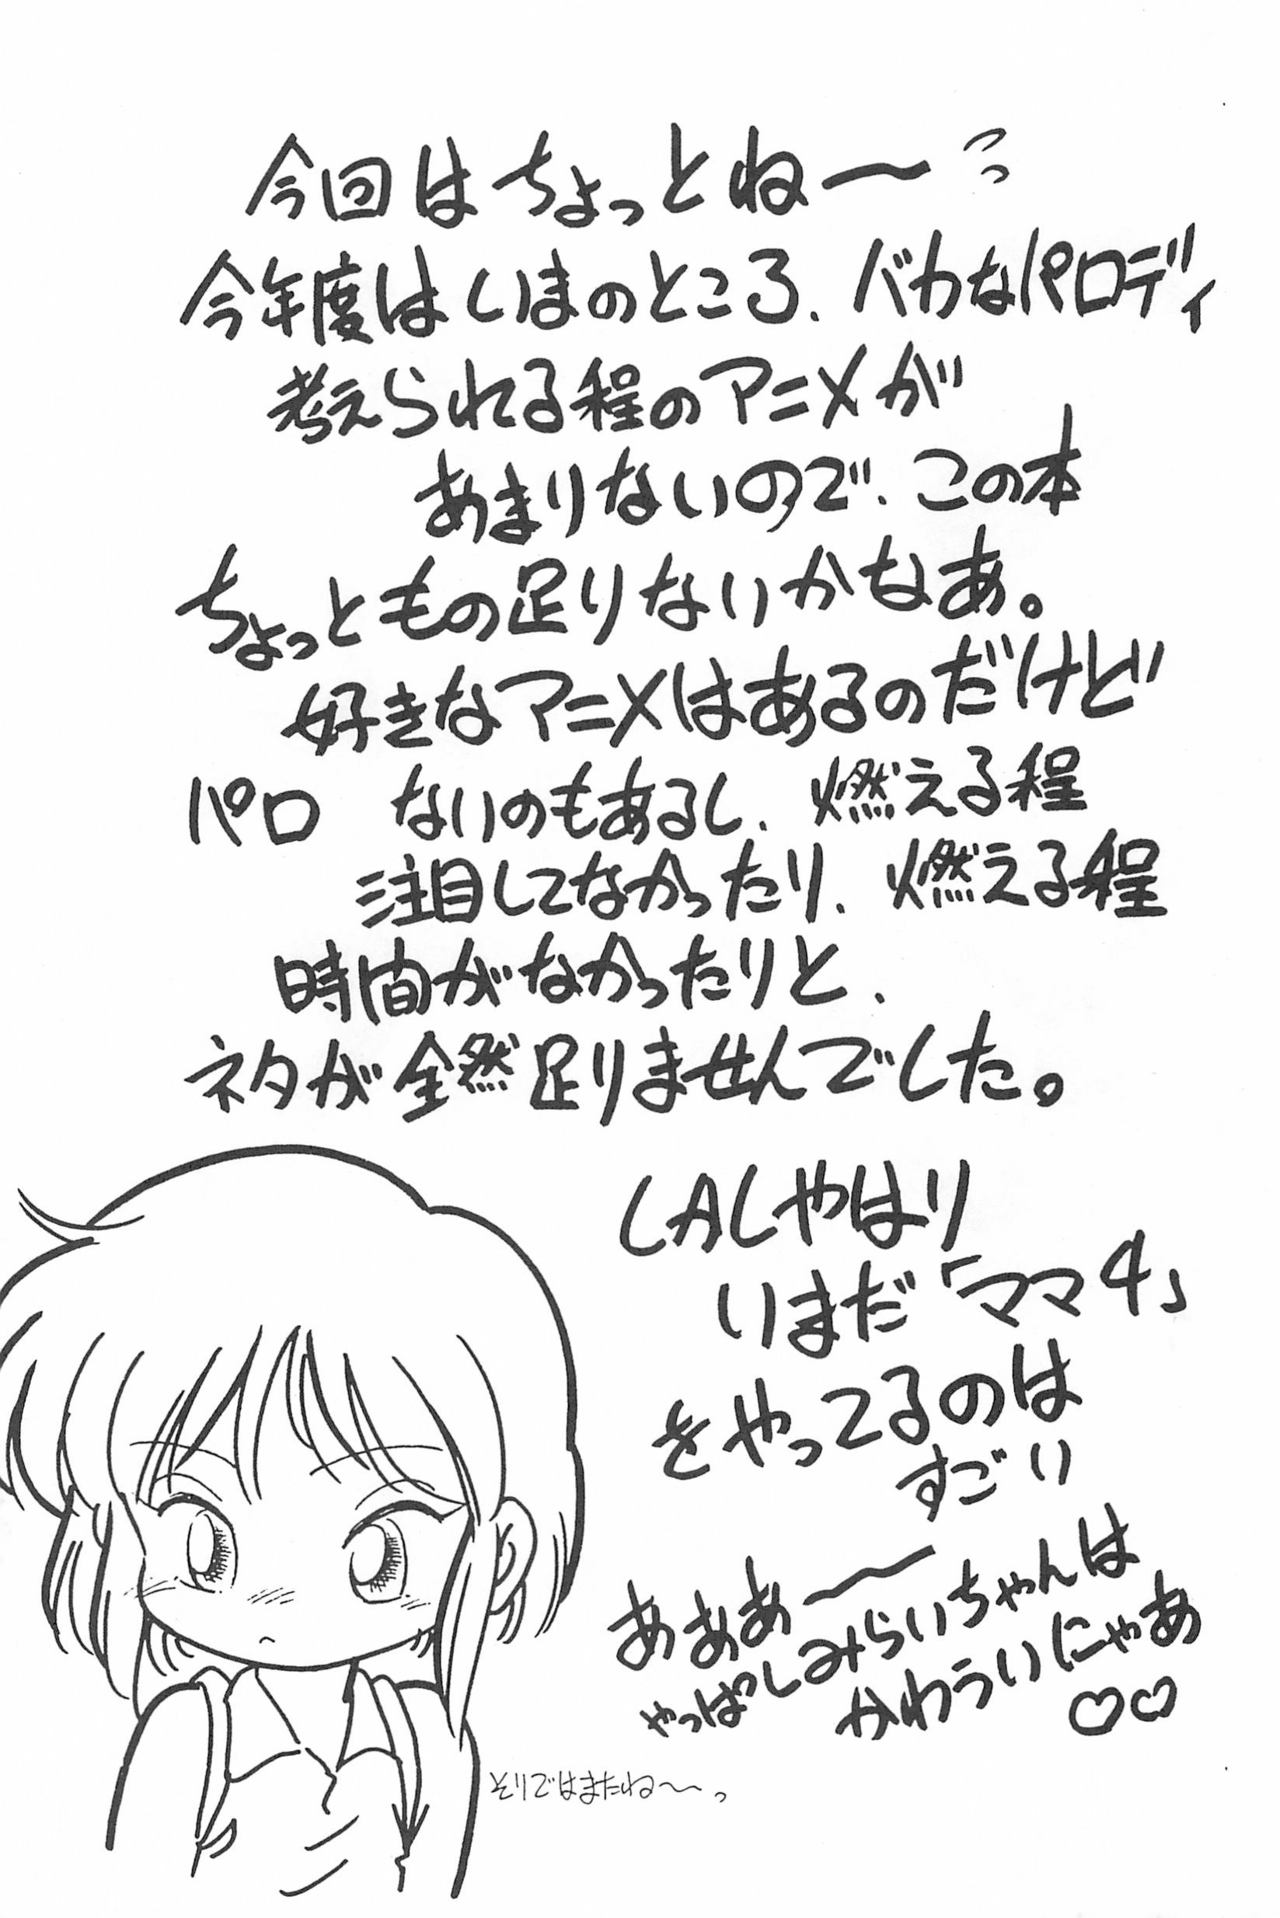 今回はちょっとね〜っ
今年度はいまのところ、バカなパロディ
考えられる程のアニメが
あまりないので、この本
ちょっともの足りないかなあ。
好きなアニメはあるのだけど
パロ ないのもあるし、燃える程
注目してなかったり、燃える程
時間がなかったりと、
ネタが全然足りませんでした。
しかしやはり
いまだ「ママ4」
をやってるのは
すごい
あああ〜
やっぱしみらいちゃんは
かわういにゃあ
♡♡
そりではまたね〜っ